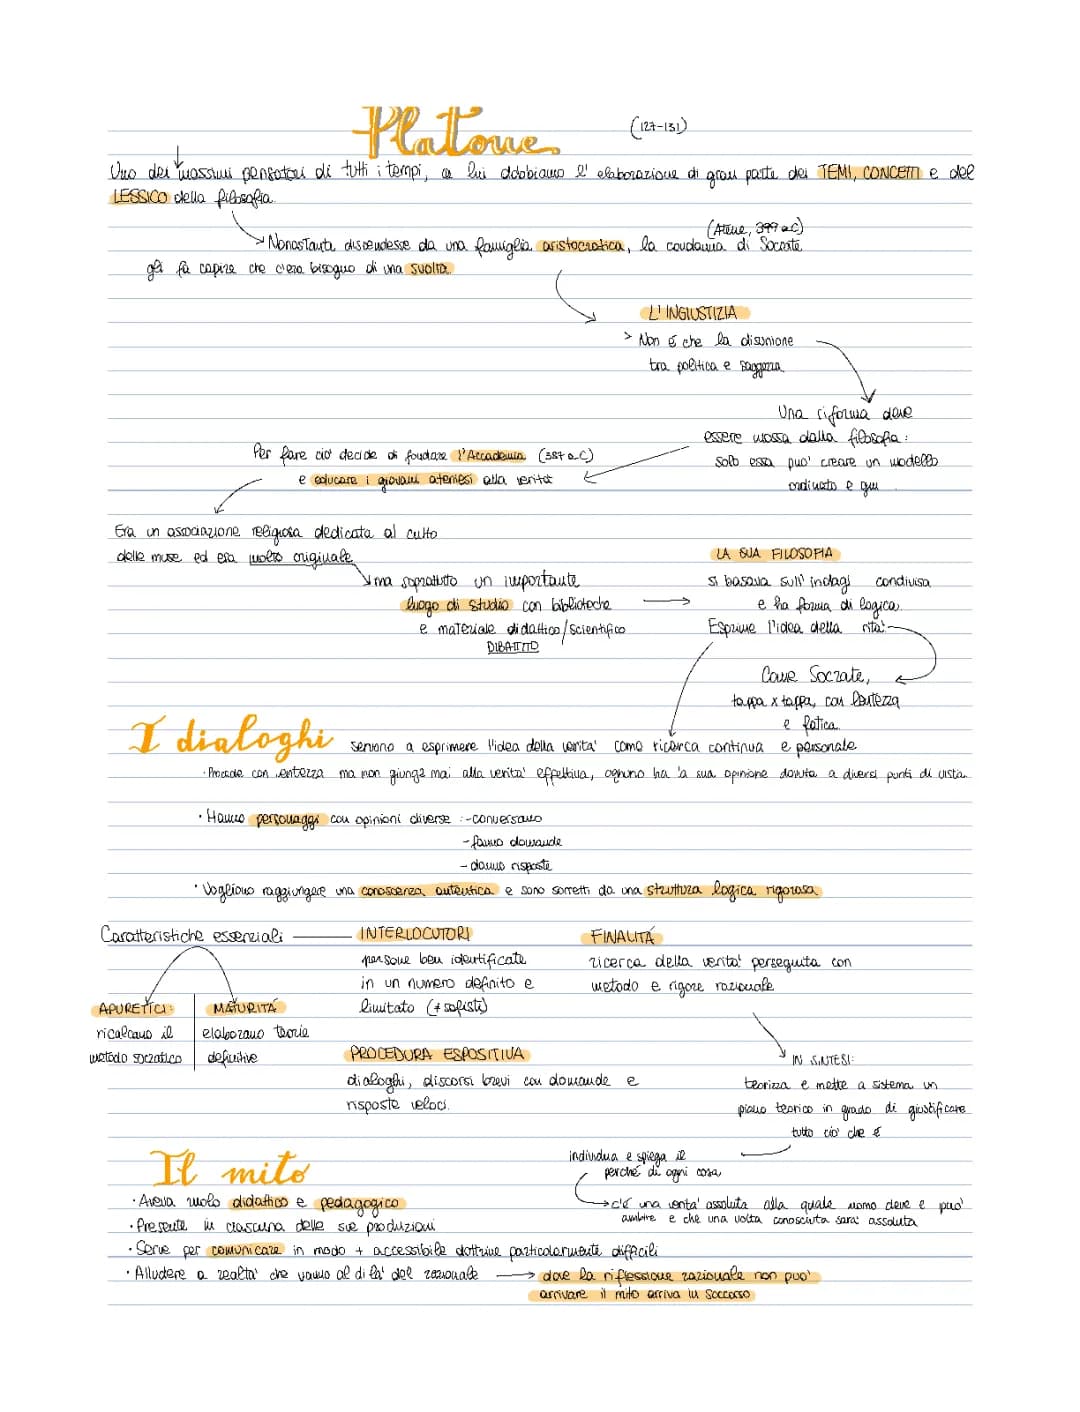 Platone (127-131)
Uno dei massimi pensatori di tutti i tempi, a lui dobbiamo l'elaborazione di gran parte dei TEMI, CONCETTI e del
LESSICO della filosofia.
(Atene, 399 a.C)
Nonostante discendesse da una famiglia aristocratica, la condanna di Socrate
gli fa capire che c'era bisogno di una svolta
L'INGIUSTIZIA
> Non é che la disunione
tra politica e saggezza
Una riforma deve
essere mossa dalla filosofia:
solo essa puo' creare un modello
ordinato e
Per fare ciò decide di fondare l'Accademia (387 a.C)
e educare i giovani ateniesi alla verità
Era un associazione religiosa dedicata al culto
delle muse ed era molto originale
ma soprattutto un importante
luogo di studio con biblioteche
e materiale didattico/scientifico
DIBATTITO
LA SUA FILOSOFIA
si basava sull'indagi condivisa
e ha forma di logica.
Esprime l'idea della rita'
Come Socrate,
tappa x tappa, con lentezza
e fatica.
I dialoghi servono a esprimere l'idea della verita' come ricerca continua e personale
· Procede con entezza ma non giunge mai alla verita' effettiva, ognuno ha 'a sua opinione dovuta a diversi punti di vista
· Hanno personaggi con opinioni diverse :-conversano
- fanno domande
- danno risposte
· Vogliono raggiungere una conoscenza autentica e sono sorretti da una struttura logica rigorosa
Caratteristiche essenziali
APORETICI:
ricalcano il
metodo socratico
MATURITÁ
elaborano teorie
definitive
INTERLOCUTORI
persone ben identificate
in un numero definito e
limitato (≠ sofisti)
PROCEDURA ESPOSITIVA
dialoghi, discorsi brevi con domande e
risposte veloci.
FINALITÁ
ricerca della verita' perseguita con
metodo e rigore razionale
IN SINTESI:
teorizza e mette a sistema un
piano teorico in grado di giustificare
tutto cio' che é
individua e spiega il
perché di ogni cosa
c'é una verita' assoluta alla quale uomo deve e puo'
ambire e che una volta conosciuta sara' assoluta
Il mito
· Aveva ruolo didattico e pedagogico
· Presente in ciascuna delle sue produzioni
· Serve per comunicare in modo + accessibile dottrine particolarmente difficili
· Alludere a realta' che vanno al di la' del razionale
dove la riflessione razionale non puo'
arrivare il mito arriva in soccorso